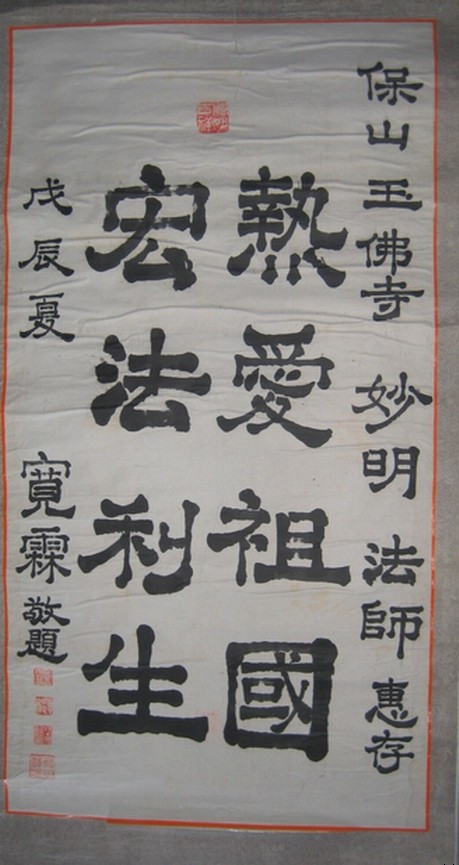 保山玉佛寺 妙明 法師 惠存
熱愛祖國
宏法利生
戊辰夏 寬霖敬題